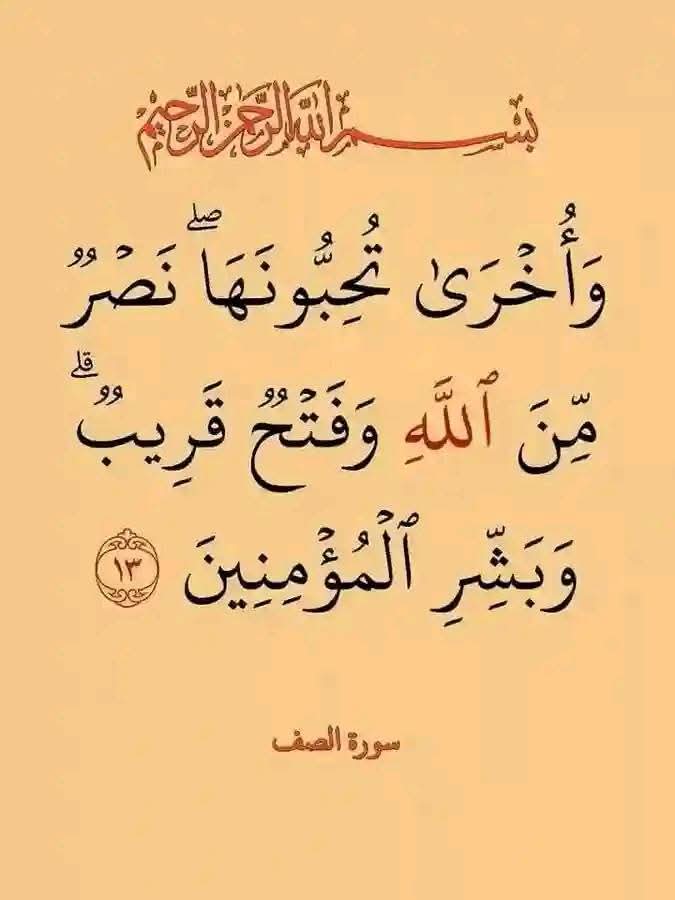 بسم الله الرحمن الرحيم
وَأُخْرَىٰ تُحِبُّونَهَا ۖ نَصْرٌ
مِّنَ ٱللَّهِ وَفَتْحٌ قَرِيبٌ ۗ
وَبَشِّرِ ٱلْمُؤْمِنِينَ ١٣
سورة الصف